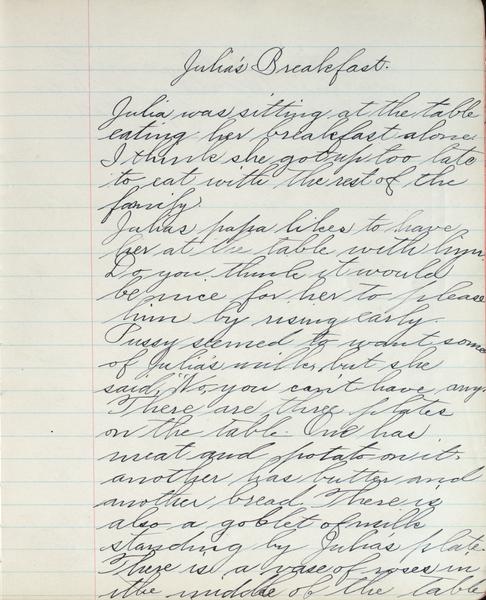 Julia's Breakfast.
Julia was sitting at the table
eating her breakfast alone.
I think she got up too late
to eat with the rest of the
family.
Julia's papa likes to have
her at the table with him.
Do you think it would
be nice for her to please
him by rising early.
Pussy seemed to want some
of Julia's milk, but she
said, "No, you can't have any."
There are three plates
on the table. One has
meat and potato on it,
another has butter and
another bread. There is
also a goblet of milk
standing by Julia's plate.
There is a vase of roses in
the middle of the table